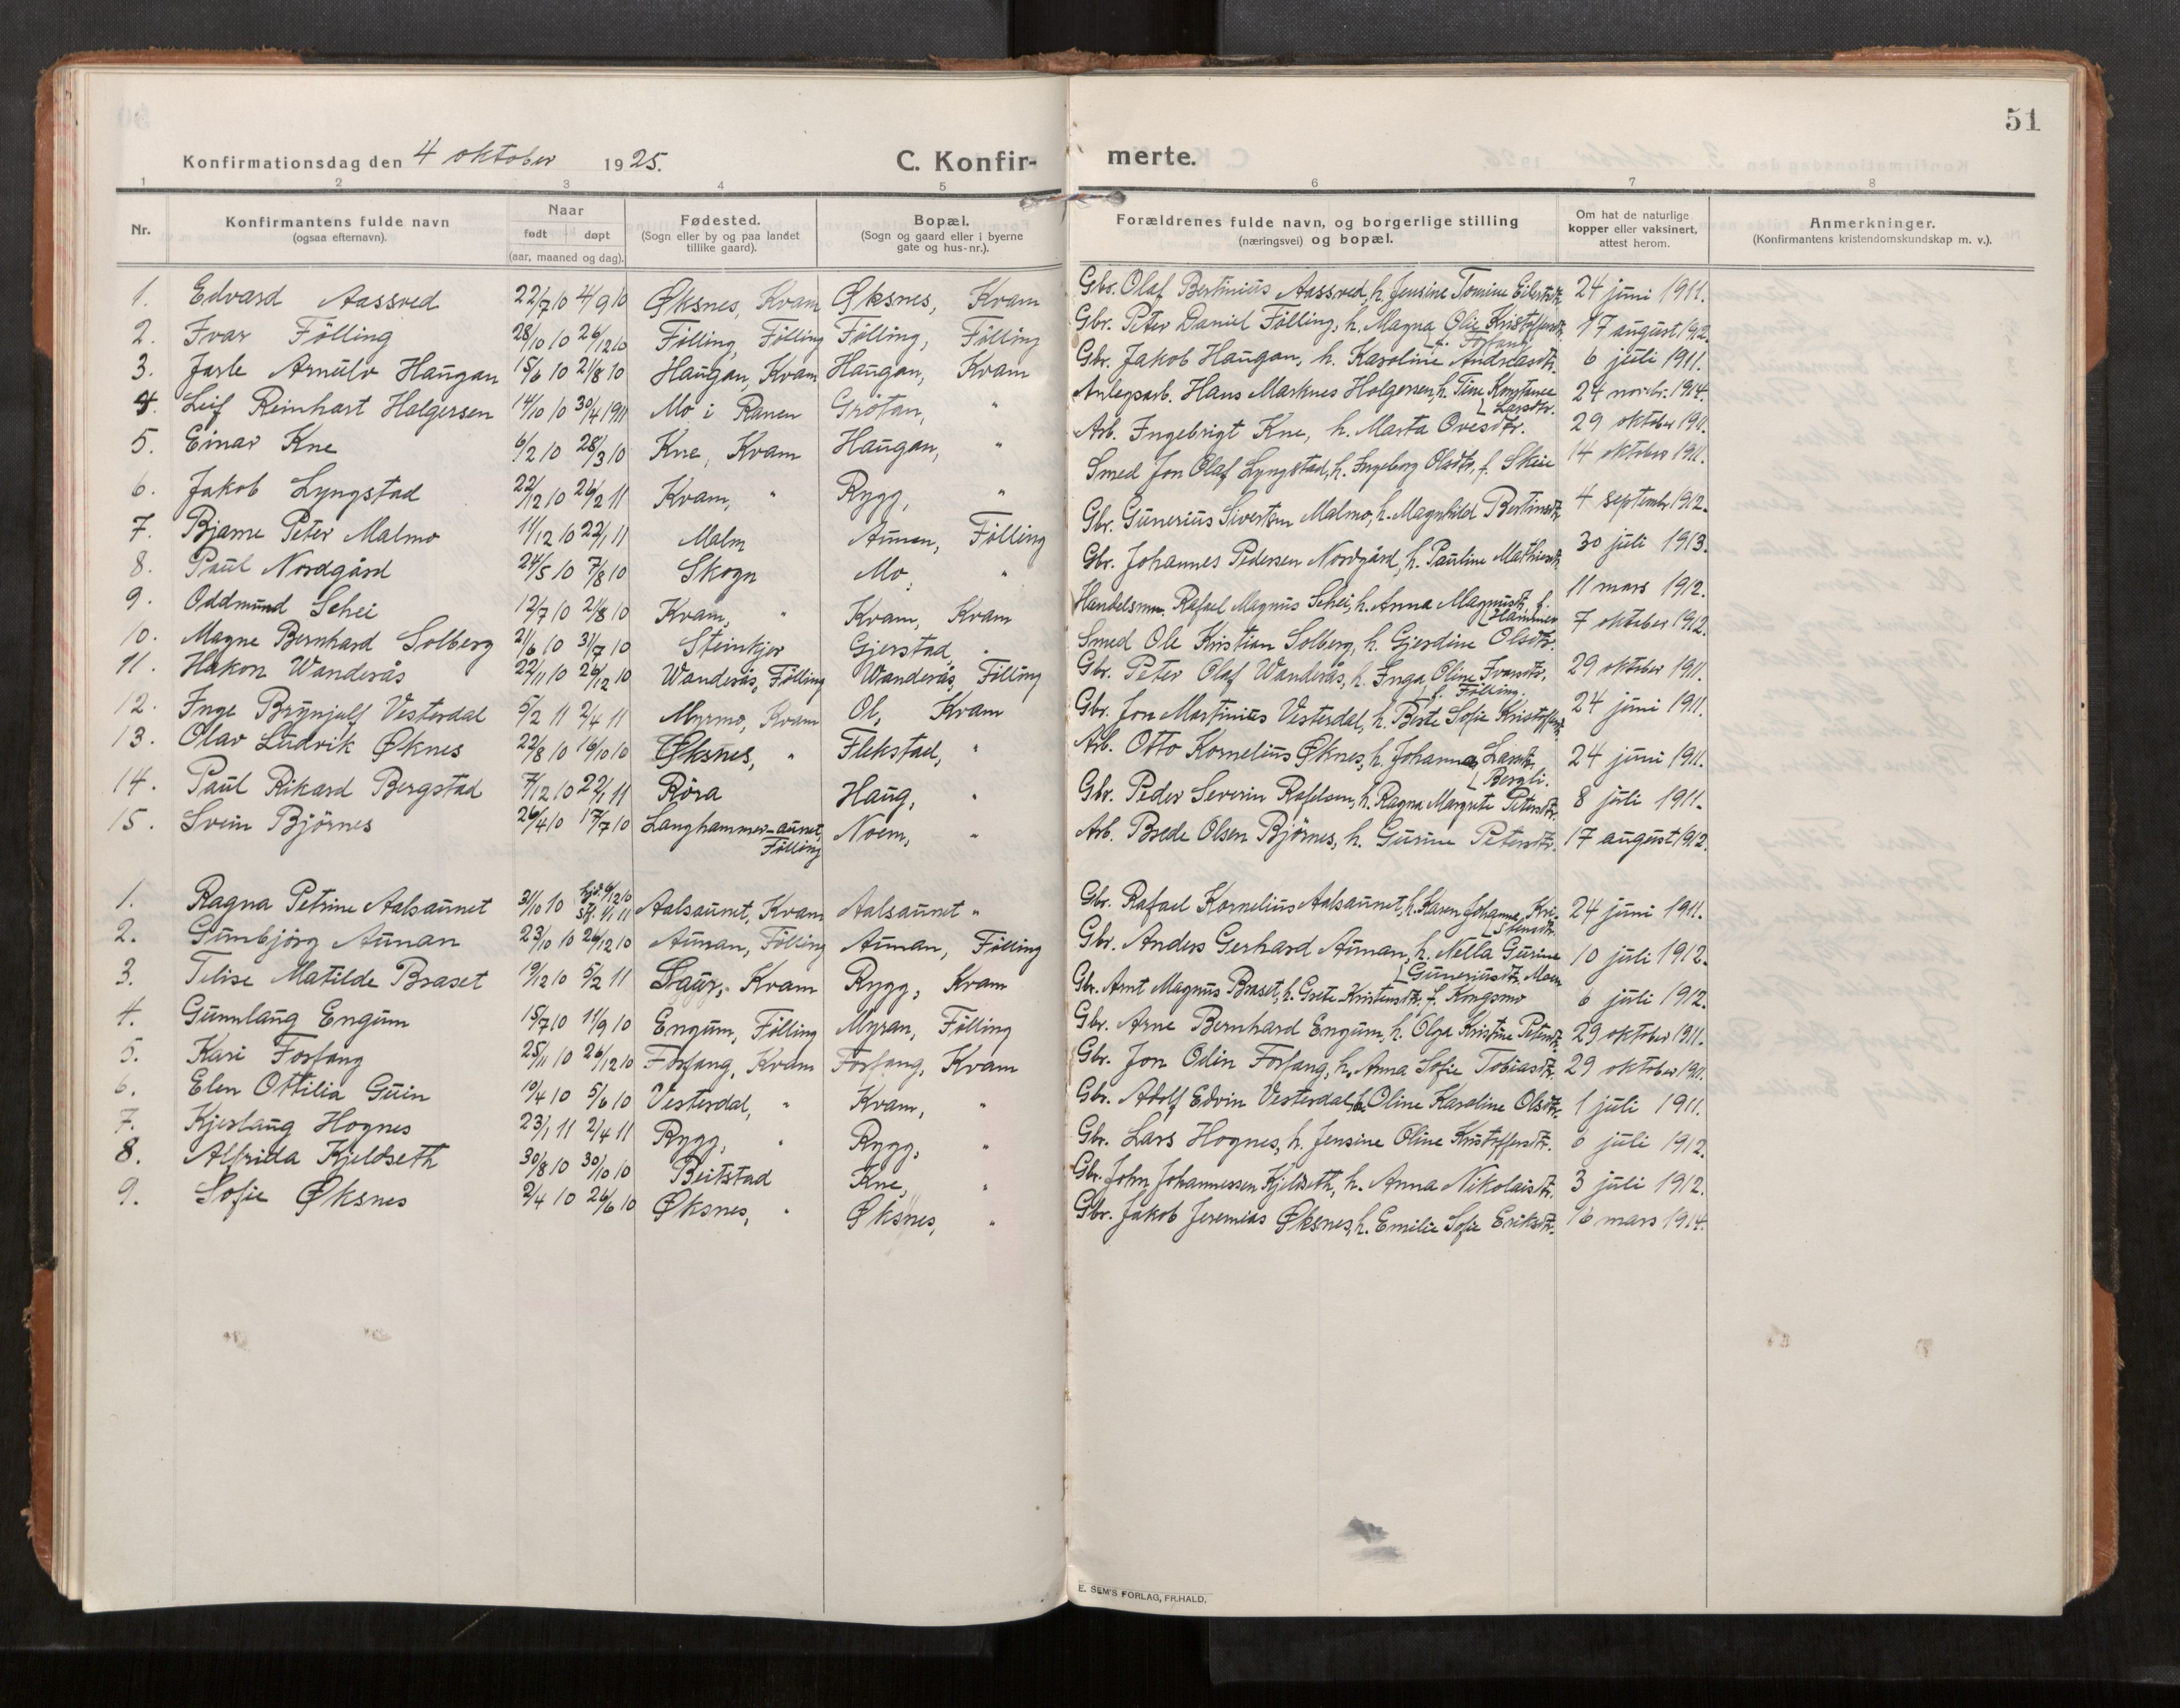 51
Konfirmationsdag den 4 oktober 1925. C. Konfir- merte.
1 2 3 4 5 6 7 8
Nr. Konfirmantens fulde navn (ogsaa efternavn). Naar født døpt (aar, maaned og dag). Fødested. (Sogn eller by og paa landet tillike gaard). Bopæl. (Sogn og gaard eller i byerne gate og hus-nr.). Forældrenes fulde navn, og borgerlige stilling (næringsvei) og bopæl. Om hat de naturlige kopper eller vaksinert, attest herom. Anmerkninger. (Konfirmantens kristendomskundskap m. v.).
1. Edvard Aassved 22/7 10 4/9 10 Øksnes, Kvam Øksnes, Kvam Gbr. Olaf Bertinius Aassved, h. Jensine Tomine Eilertsdtr. 24 juni 1911.
2. Ivar Fölling 28/10 10 26/12 10 Fölling, Fölling Fölling, Fölling Gbr. Peter Daniel Fölling, h. Magna Olie Kristoffersdtr. f. Forfang 17 august 1912.
3. Jarle Arnulv Haugan 15/6 10 21/8 10 Haugan, Kvam Haugan, Kvam Gbr. Jakob Haugan, h. Karoline Andreasdtr. 6 juli 1911.
4. Leif Reinhart Holgersen 14/10 10 30/4 1911 Mo i Ranen Grötan, " Anlegsarb. Hans Marknes Holgersen, h. Tine Konstanse Larsdtr. 24 novbr. 1914.
5. Einar Kne 6/2 10 28/3 10 Kne, Kvam Haugan, " Arb. Ingebrigt Kne, h. Marta Ovesdtr. 29 oktober 1911.
6. Jakob Lyngstad 22/12 10 26/2 11 Kvam, " Rygg, " Smed Jon Olaf Lyngstad, h. Ingeborg Olsdtr, f. Skeie 14 oktober 1911.
7. Bjarne Peter Malmo 11/12 10 22/1 11 Malm Aunan, Fölling Gbr. Gunerius Sivertsen Malmo, h. Magnhild Bertinsdtr. 4 septembr 1912.
8. Paul Nordgård 24/5 10 7/8 10 Skogn Mo, " Gbr. Johannes Pedersen Nordgård, h. Pauline Mathiasdtr. 30 juli 1913.
9. Oddmund Schei 12/7 10 21/8 10 Kvam, " Kvam, Kvam Handelsm. Rafael Magnus Schei, h. Anna Magnusdtr, f. Hammer 11 mars 1912.
10. Magne Bernhard Solberg 21/6 10 31/7 10 Steinkjer Gjerstad, " Smed Ole Kristian Solberg, h. Gjerdine Olsdtr. 7 oktober 1912.
11. Håkon Wanderås 22/11 10 26/12 10 Wanderås, Fölling Wanderås, Fölling Gbr. Peter Olaf Wanderås, h. Inga Oline Ivarsdtr, f. Fölling. 29 oktober 1911.
12. Inge Brynjulf Vesterdal 5/2 11 2/4 11 Myrmo, Kvam Ol, Kvam Gbr. Jon Martinius Vesterdal, h. Berte Sofie Kristoffersdtr. 24 juni 1911.
13. Olav Ludvik Øknes 22/8 10 16/10 10 Øksnes, " Flekstad, " Arb. Otto Kornelius Øknes, h. Johanna Larsdtr. Bergli. 24 juni 1911.
14. Paul Rikard Bergstad 7/12 10 22/1 11 Röra Haug, " Gbr. Peder Severin Rafelsen, h. Ragna Margrete Petersdtr. 8 juli 1911.
15. Svein Björnes 26/4 10 17/7 10 Langhammer-aunet, Fölling Noem, " Arb. Brede Olsen Björnes, h. Gurine Petersdtr. 17 august 1912.
1. Ragna Petrine Aalsaunet 31/10 10 hjd. 6/12 10 st. 1/1 11 Aalsaunet, Kvam Aalsaunet " Gbr. Rafael Kornelius Aalsaunet, h. Karen Johanna Kristensdtr. 24 juni 1911.
2. Gunnbjörg Aunan 23/10 10 26/12 10 Aunan, Fölling Aunan, Fölling Gbr. Anders Gerhard Aunan, h. Nella Gurine Guneriusdtr. Moen 10 juli 1912.
3. Telise Matilde Braset 19/12 10 5/2 11 Saur, Kvam Rygg, Kvam Gbr. Arnt Magnus Braset, h. Grete Kristensdtr. f. Kongsmo 6 juli 1912.
4. Gunnlaug Engum 15/7 10 11/9 10 Engum, Fölling Myran, Fölling Gbr. Arne Bernhard Engum, h. Olga Kristine Petersdtr. 29 oktober 1911.
5. Kari Forfang 25/11 10 26/12 10 Forfang, Kvam Forfang, Kvam Gbr. Jon Odin Forfang, h. Anna Sofie Tobiasdtr. 29 oktober 1911.
6. Elen Ottilia Guin 19/4 10 5/6 10 Vesterdal, " Kvam, " Gbr. Adolf Edvin Vesterdal, h. Oline Karoline Olsdtr. 1 juli 1911.
7. Kjerlaug Hognes 23/1 11 2/4 11 Rygg, " Rygg, " Gbr. Lars Hognes, h. Jensine Oline Kristoffersdtr. 6 juli 1912.
8. Alfrida Kjeldseth 30/8 10 30/10 10 Beitstad Kne, " Gbr. John Johannessen Kjeldseth, h. Anna Nikolaisdtr. 3 juli 1912.
9. Sofie Øksnes 2/4 10 26/6 10 Øksnes, " Øksnes, " Gbr. Jakob Jeremias Øksnes, h. Emilie Sofie Eriksdtr. 16 mars 1914.
E. SEM'S FORLAG, FR.HALD.